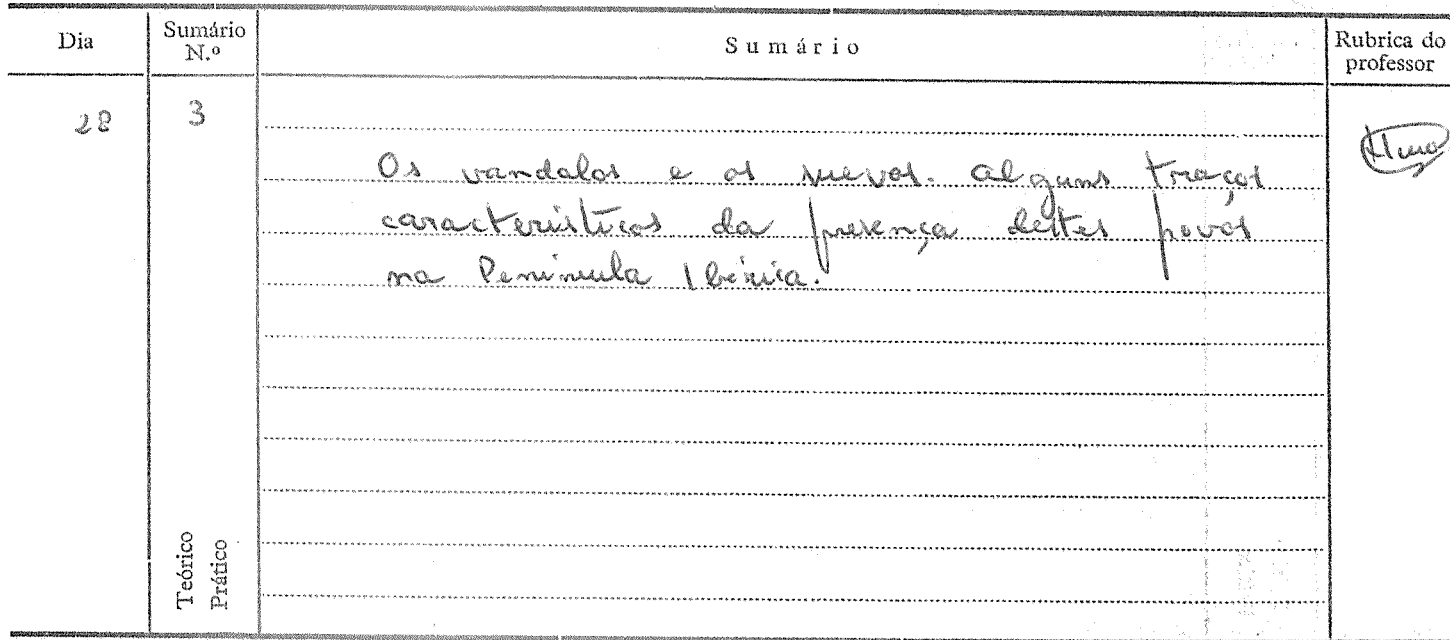 Dia
Sumário N.º
Sumário
Rubrica do professor
28
3
Os vandalos e os suevos. Alguns traços
característicos da presença destes povos
na Península Ibérica.
Teórico
Prático